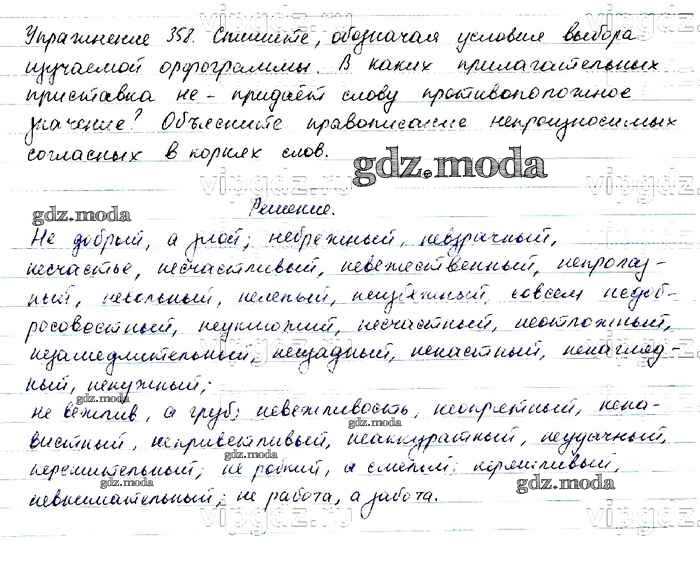 Упражнение 358. Спишите, обозначая условия выбора
изучаемой орфограммы. В каких прилагательных
приставка не- придаёт слову противоположное
значение? Объясните правописание непроизносимых
согласных в корнях слов.
gdz.moda
Решение.
gdz.moda
Не добрый, а злой; небрежный, невзрачный,
несчастье, несчастливый, невежественный, непролаз-
ный, невольный, нелепый, неизбежный, совсем недоб-
росовестный, неуклюжий, несчастный, неотложный,
незамедлительный, нещадный, ненастный, ненагляд-
ный, ненужный;
gdz.moda
не вежлив, а груб; невежливость, неопрятный, нена-
gdz.moda
вистный, неприветливый, неаккуратный, неудачный,
нерешительный; не робкий, а смелый; неряшливый,
gdz.moda
невнимательный; не работа, а забота.
gdz.moda
vipgdz.ru